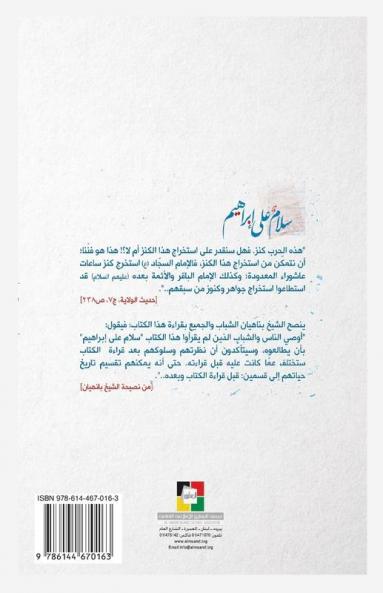 سلام على إبراهيم
"هذه الحرب كنز. فهل سنقدر على استخراج هذا الكنز أم لا؟! هذا هو فنّنا؛
أن نتمكن من استخراج هذا الكنز. فالإمام السجّاد (ع) استخرج كنز ساعات
عاشوراء المعدودة؛ وكذلك الإمام الباقر والأئمة بعده (عليهم السلام) قد
استطاعوا استخراج جواهر وكنوز من سبقهم..".
[حديث الولاية، ج٧، ص٢٣٨]
ينصح الشيخ بناهيان الشباب والجميع بقراءة هذا الكتاب؛ فيقول:
"أوصي الناس والشباب الذين لم يقرأوا هذا الكتاب "سلام على إبراهيم"
بأن يطالعوه، وسيتأكدون أن نظرتهم وسلوكهم بعد قراءة الكتاب
ستختلف عمّا كانت عليه قبل قراءته. حتى أنه يمكنهم تقسيم تاريخ
حياتهم إلى قسمين: قبل قراءة الكتاب وبعده..".
[من نصيحة الشيخ بانهيان]
ISBN 978-614-467-016-3
9 786144 670163
بيروت - لبنان - المعمورة - الشارع العام
www.almaaref.org